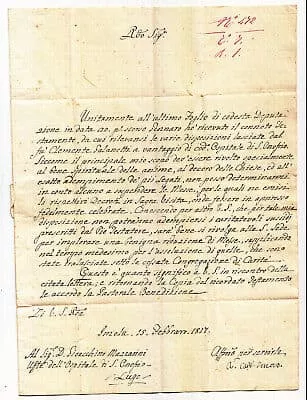 Rdo Sigr
N° 478
Unitamente all'ultimo Foglio di codesta Deputa-
zione in data 20 po scorso Gennaro ho ricevuto il connoto Te-
stamento, da cui rilevansi le varie disposizioni lasciate dal
fu Clemente a vantaggio di codo Ospitale di S. Onofrio
Siccome il principale mio scopo dev'essere rivolto specialmente
al bene spirituale delle anime, al decoro delle Chiese, ed all'
esatto adempimento de' pii Legati, non posso determinarmi
in conto alcuno a sospendere le Messe, per le quali ne emisi
in Sagra Visita, onde fossero in appresso
fedelmente celebrate. Conoscendo per altro b. S., che per tale mia
disposizione non potranno adempiersi i caritatevoli sussidj
prescritti dal Pio Testatore, sarà bene si rivolga alla S. Sede
per implorare una benigna riduzione di Messe, supplicando
nel tempo medesimo per l'assoluzione di quelle, che sono
state tralasciate sotto le cessate Congregazioni di Carità.
Questo è quanto significo a b. S. in riscontro della
citata lettera, e ritornando la Copia del ricordato Testamento
le accordo la Pastorale Benedizione.
Di b. S. Rda
Imola 15. Febbraro 1817.
Al Sigr D. Gioacchino Mazzanni
dell'Ospitale di S. Onofrio
Lugo
Affmo per servirla